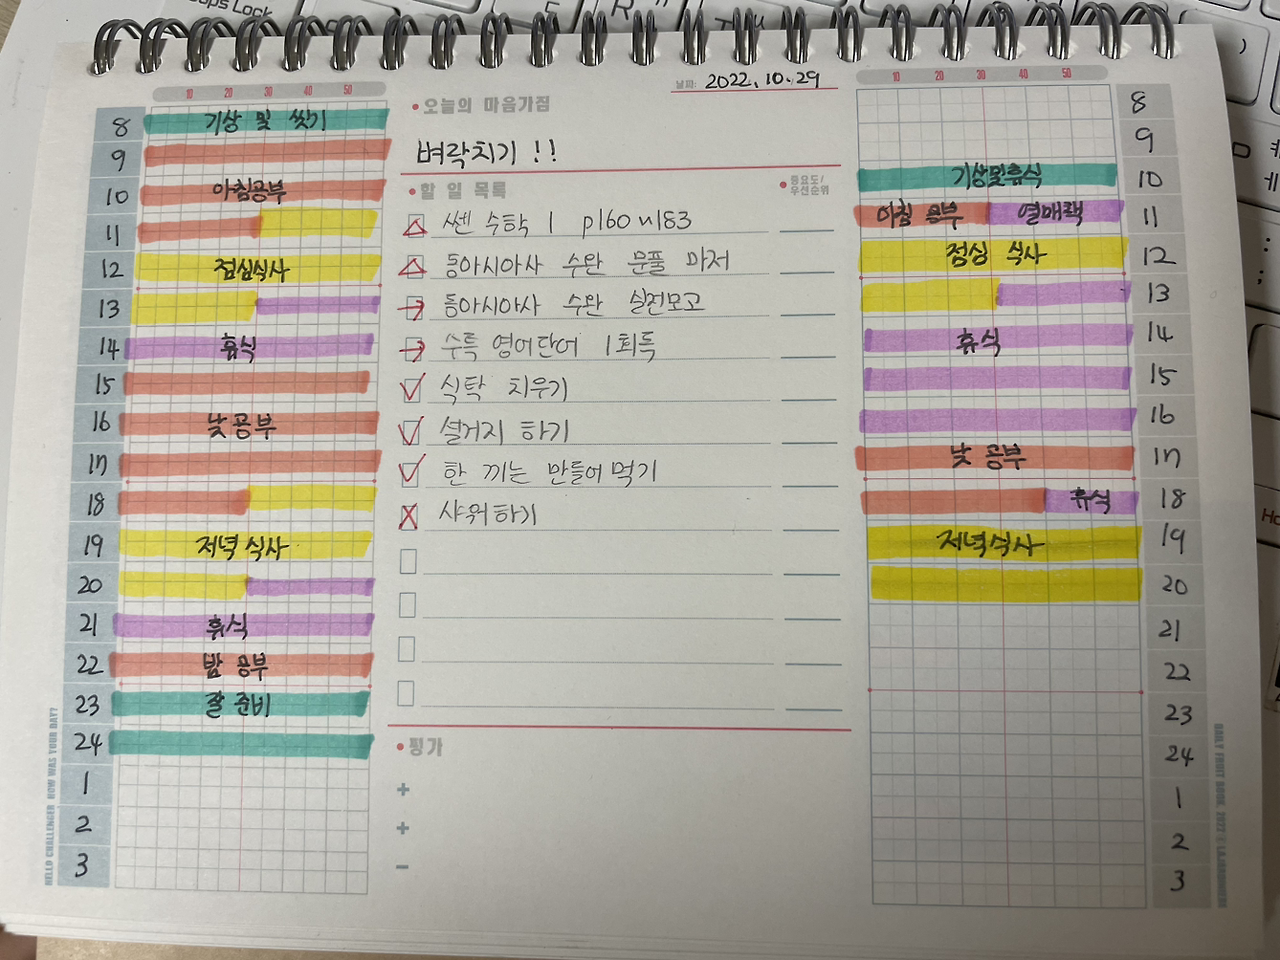 Caps Lock
날짜: 2022.10.29
10 20 30 40 50
8 기상 및 씻기
9
10 아침공부
11
12 점심식사
13
14 휴식
15
16 낮공부
17
18
19 저녁 식사
20
21 휴식
22 밤 공부
23 잘 준비
24
1
2
3
HELLO CHALLENGER HOW WAS YOUR DAY?
오늘의 마음가짐
벼락치기 !!
할 일 목록
중요도/
우선순위
쎈 수학 1 p160~183
동아시아사 수완 문풀 마저
동아시아사 수완 실전모고
수특 영어단어 1회독
식탁 치우기
설거지 하기
한 끼는 만들어 먹기
샤워하기
평가
+
+
−
10 20 30 40 50
8
9
10 기상및휴식
11 아침 공부 열매책
12 점심 식사
13
14 휴식
15
16
17 낮 공부
18 휴식
19 저녁식사
20
21
22
23
24
1
2
3